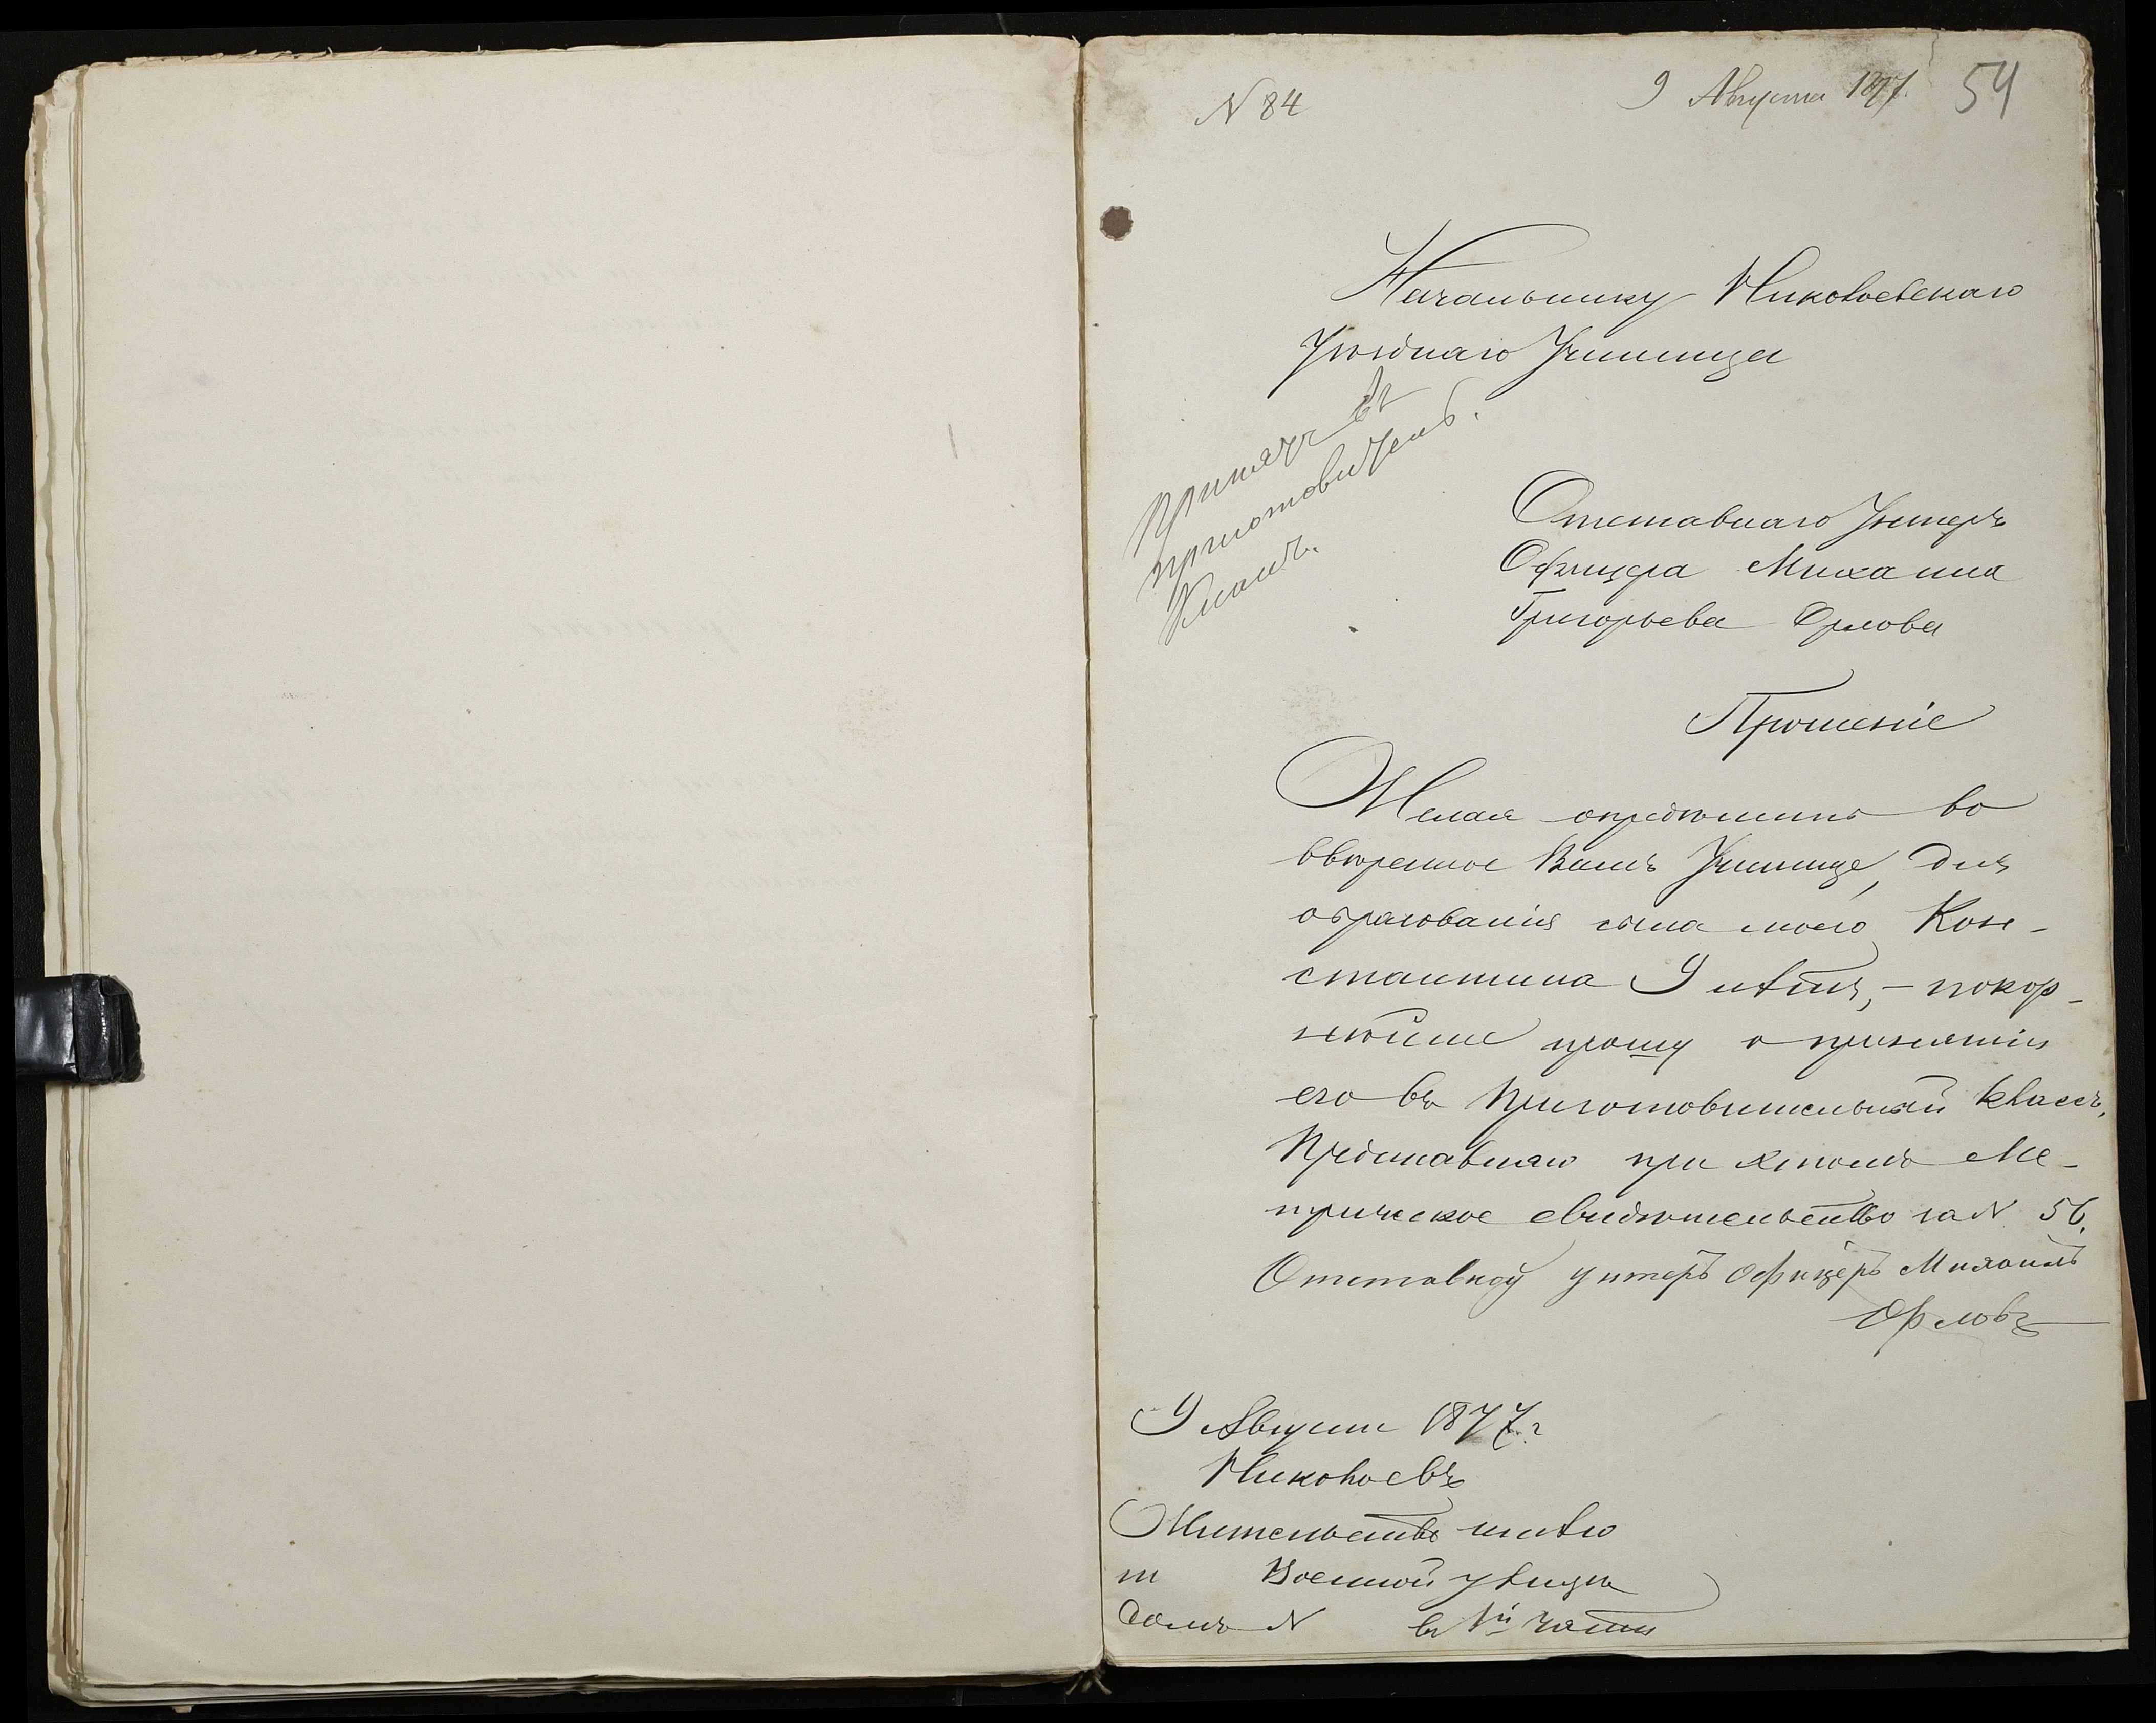 N 84
9 Августа 1877.
54
Начальнику Николаевскаго
Уѣзднаго Училища
Принять въ
приготовительн.
Классъ.
Отставнаго Унтеръ
Офицера Михаила
Григорьева Орлова
Прошеніе
Желая опредѣлить во
ввѣренное Вамъ Училище, для
образованія сына моего Кон-
стантина 9 лѣтъ, - покор-
нѣйше прошу о принятіи
его въ Приготовительный классъ,
Представляю при этомъ Ме-
трическое свидѣтельство за N 56.
Отставной унтеръ офицеръ Михаилъ
Орловъ
9 Августа 1877 г
Николаевъ
Жительство имѣю
по Военной улицѣ
домъ N въ 1й части